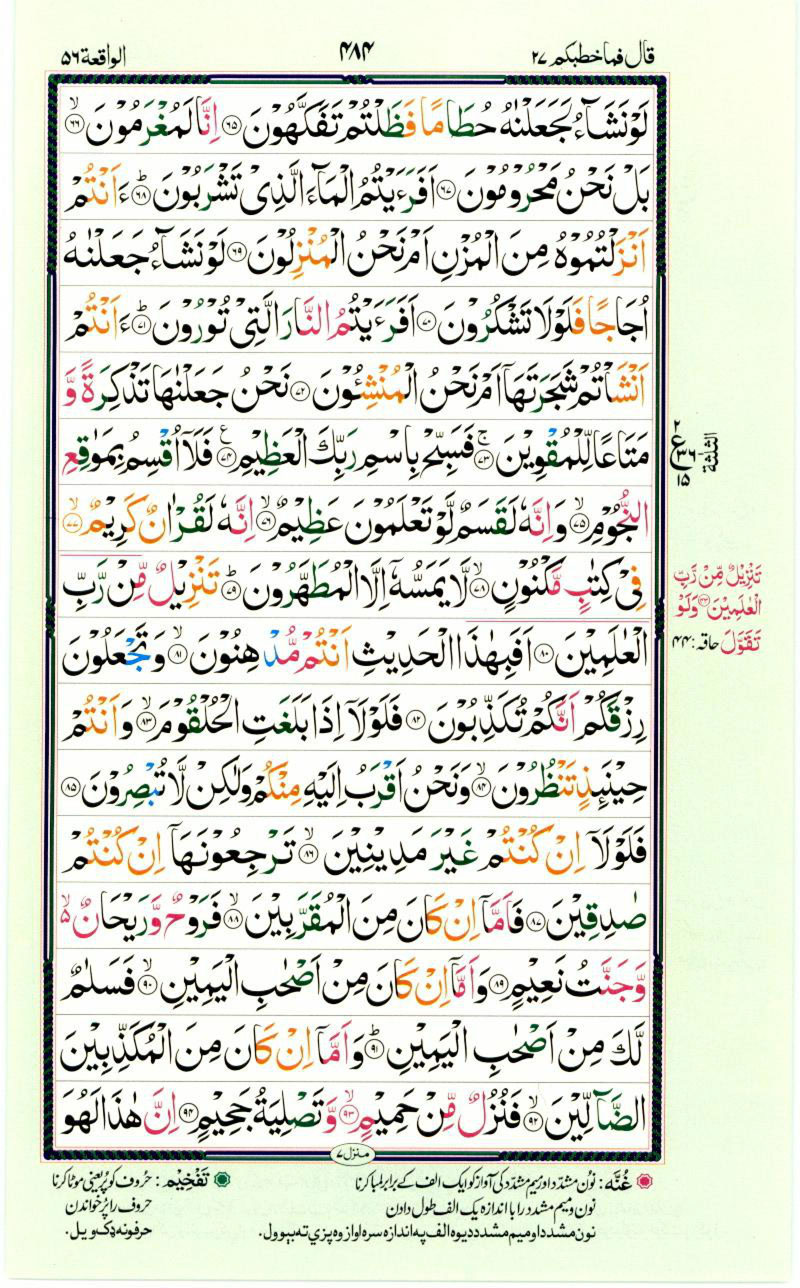 قال فما خطبکم ۲۷
۴۸۴
الواقعة ۵۶
لَوْ نَشَآءُ لَجَعَلْنٰهُ حُطَامًا فَظَلْتُمْ تَفَكَّهُوْنَ ﴿۶۵﴾ اِنَّا لَمُغْرَمُوْنَ ۙ﴿۶۶﴾
بَلْ نَحْنُ مَحْرُوْمُوْنَ ﴿۶۷﴾ اَفَرَءَيْتُمُ الْمَآءَ الَّذِىْ تَشْرَبُوْنَ ؕ﴿۶۸﴾ ءَاَنْتُمْ
اَنْزَلْتُمُوْهُ مِنَ الْمُزْنِ اَمْ نَحْنُ الْمُنْزِلُوْنَ ﴿۶۹﴾ لَوْ نَشَآءُ جَعَلْنٰهُ
اُجَاجًا فَلَوْلَا تَشْكُرُوْنَ ﴿۷۰﴾ اَفَرَءَيْتُمُ النَّارَ الَّتِىْ تُوْرُوْنَ ؕ﴿۷۱﴾ ءَاَنْتُمْ
اَنْشَاْتُمْ شَجَرَتَهَاۤ اَمْ نَحْنُ الْمُنْشِـُٔوْنَ ﴿۷۲﴾ نَحْنُ جَعَلْنٰهَا تَذْكِرَةً وَّ
مَتَاعًا لِّلْمُقْوِيْنَ ۚ﴿۷۳﴾ فَسَبِّحْ بِاسْمِ رَبِّكَ الْعَظِيْمِ ﴿۷۴﴾ ع فَلَاۤ اُقْسِمُ بِمَوٰقِعِ
النُّجُوْمِ ۙ﴿۷۵﴾ وَاِنَّهٗ لَقَسَمٌ لَّوْ تَعْلَمُوْنَ عَظِيْمٌ ۙ﴿۷۶﴾ اِنَّهٗ لَقُرْاٰنٌ كَرِيْمٌ ۙ﴿۷۷﴾
فِىْ كِتٰبٍ مَّكْنُوْنٍ ۙ﴿۷۸﴾ لَّا يَمَسُّهٗۤ اِلَّا الْمُطَهَّرُوْنَ ؕ﴿۷۹﴾ تَنْزِيْلٌ مِّنْ رَّبِّ
الْعٰلَمِيْنَ ﴿۸۰﴾ اَفَبِهٰذَا الْحَدِيْثِ اَنْتُمْ مُّدْهِنُوْنَ ۙ﴿۸۱﴾ وَتَجْعَلُوْنَ
رِزْقَكُمْ اَنَّكُمْ تُكَذِّبُوْنَ ﴿۸۲﴾ فَلَوْلَاۤ اِذَا بَلَغَتِ الْحُلْقُوْمَ ۙ﴿۸۳﴾ وَاَنْتُمْ
حِيْنَئِذٍ تَنْظُرُوْنَ ۙ﴿۸۴﴾ وَنَحْنُ اَقْرَبُ اِلَيْهِ مِنْكُمْ وَلٰكِنْ لَّا تُبْصِرُوْنَ ﴿۸۵﴾
فَلَوْلَاۤ اِنْ كُنْتُمْ غَيْرَ مَدِيْنِيْنَ ۙ﴿۸۶﴾ تَرْجِعُوْنَهَاۤ اِنْ كُنْتُمْ
صٰدِقِيْنَ ﴿۸۷﴾ فَاَمَّاۤ اِنْ كَانَ مِنَ الْمُقَرَّبِيْنَ ۙ﴿۸۸﴾ فَرَوْحٌ وَّرَيْحَانٌ ۙ۬
وَّجَنَّتُ نَعِيْمٍ ﴿۸۹﴾ وَاَمَّاۤ اِنْ كَانَ مِنْ اَصْحٰبِ الْيَمِيْنِ ۙ﴿۹۰﴾ فَسَلٰمٌ
لَّكَ مِنْ اَصْحٰبِ الْيَمِيْنِ ؕ﴿۹۱﴾ وَاَمَّاۤ اِنْ كَانَ مِنَ الْمُكَذِّبِيْنَ
الضَّآلِّيْنَ ۙ﴿۹۲﴾ فَنُزُلٌ مِّنْ حَمِيْمٍ ۙ﴿۹۳﴾ وَّتَصْلِيَةُ جَحِيْمٍ ﴿۹۴﴾ اِنَّ هٰذَا لَهُوَ
۲
ع
۳۶
۱۵
الثلثة
تَنْزِيْلٌ مِّنْ رَّبِّ
الْعٰلَمِيْنَ ﴿۴۳﴾ وَلَوْ
تَقَوَّلَ حاقه: ۴۴
منزل ۷
غُنَّه: نُون مشدّد اور میم مشدّد کی آواز کو ایک الف کے برابر لمبا کرنا
نون و میم مشدد را با اندازه یک الف طول دادن
نون مشدد او میم مشدد دیوه الف په اندازه سره اواز وه پزې ته بېوول.
تَفْخِیْم: حُروف کو پُر یعنی موٹا کرنا
حروف را پُر خواندن
حرفونه ډک ویل.